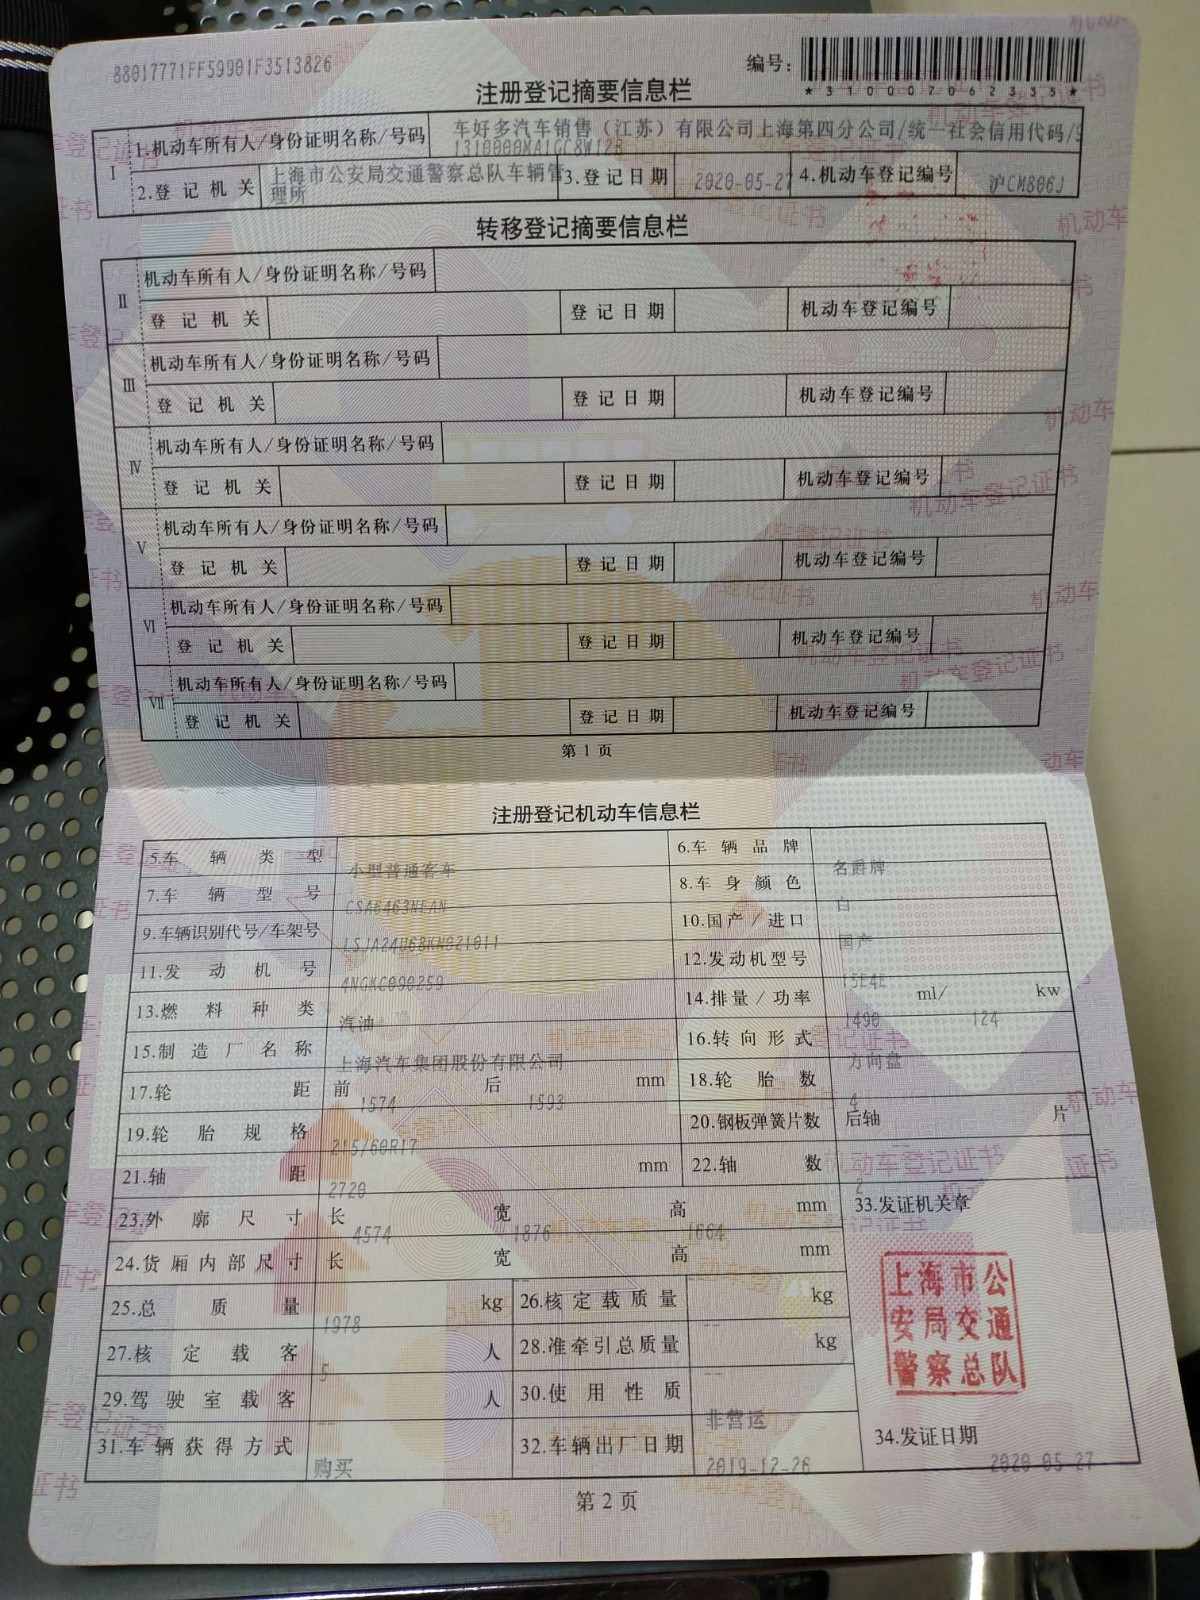 88017771FF59901F3513826
编号：
*310007062335*
注册登记摘要信息栏
I 1.机动车所有人/身份证明名称/号码 车好多汽车销售（江苏）有限公司上海第四分公司/统一社会信用代码/9
1310000MA1GC8W12B
2.登记机关 上海市公安局交通警察总队车辆管理所 3.登记日期 2020-05-27 4.机动车登记编号 沪CM806J
转移登记摘要信息栏
II 机动车所有人/身份证明名称/号码
登记机关 登记日期 机动车登记编号
III 机动车所有人/身份证明名称/号码
登记机关 登记日期 机动车登记编号
IV 机动车所有人/身份证明名称/号码
登记机关 登记日期 机动车登记编号
V 机动车所有人/身份证明名称/号码
登记机关 登记日期 机动车登记编号
VI 机动车所有人/身份证明名称/号码
登记机关 登记日期 机动车登记编号
VII 机动车所有人/身份证明名称/号码
登记机关 登记日期 机动车登记编号
第 1 页
注册登记机动车信息栏
5.车辆类型 小型普通客车 6.车辆品牌 名爵牌
7.车辆型号 CSA6463NEAN 8.车身颜色 白
9.车辆识别代号/车架号 LSJA24U68KN021011 10.国产/进口 国产
11.发动机号 4NGKC090259 12.发动机型号 15E4E
13.燃料种类 汽油 14.排量/功率 1490 ml/ 124 kw
15.制造厂名称 上海汽车集团股份有限公司 16.转向形式 方向盘
17.轮距 前 1574 后 1593 mm 18.轮胎数 4
19.轮胎规格 215/60R17 20.钢板弹簧片数 后轴 -- 片
21.轴距 2720 mm 22.轴数 2
23.外廓尺寸 长 4574 宽 1876 高 1664 mm 33.发证机关章
24.货厢内部尺寸 长 -- 宽 -- 高 -- mm
25.总质量 1978 kg 26.核定载质量 -- kg
上海市公
安局交通
警察总队
27.核定载客 5 人 28.准牵引总质量 -- kg
29.驾驶室载客 -- 人 30.使用性质 非营运
31.车辆获得方式 购买 32.车辆出厂日期 2019-12-26 34.发证日期 2020-05-27
第 2 页